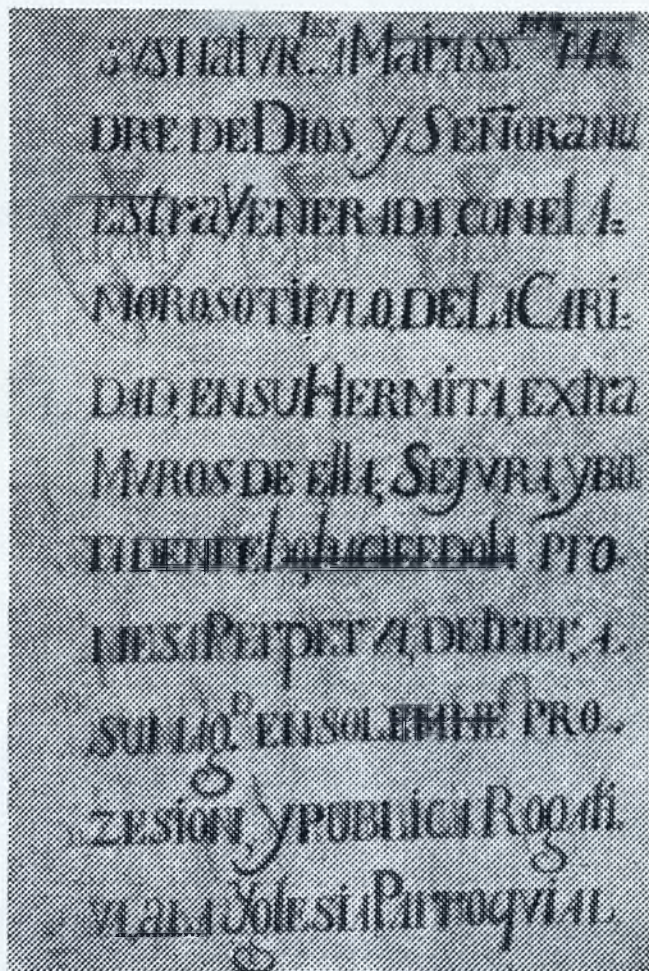 MariaSS. MA
DRE DE DIOS, y SEÑORA NU
EStra VENERADA, CON EL A=
MOROSO TITVLO, DE LA CARI=
DAD, EN SU HERMITA, EXtra
MVROS DE EllA, SE jVRA, y BO
PrO
MESA PErPETVA, DE trAER, A
SU MAG.D EN SOLEMNE PRO-
ZESION, y PUBLICA ROgAti
VA, a LA YglESIA PArroqViAL